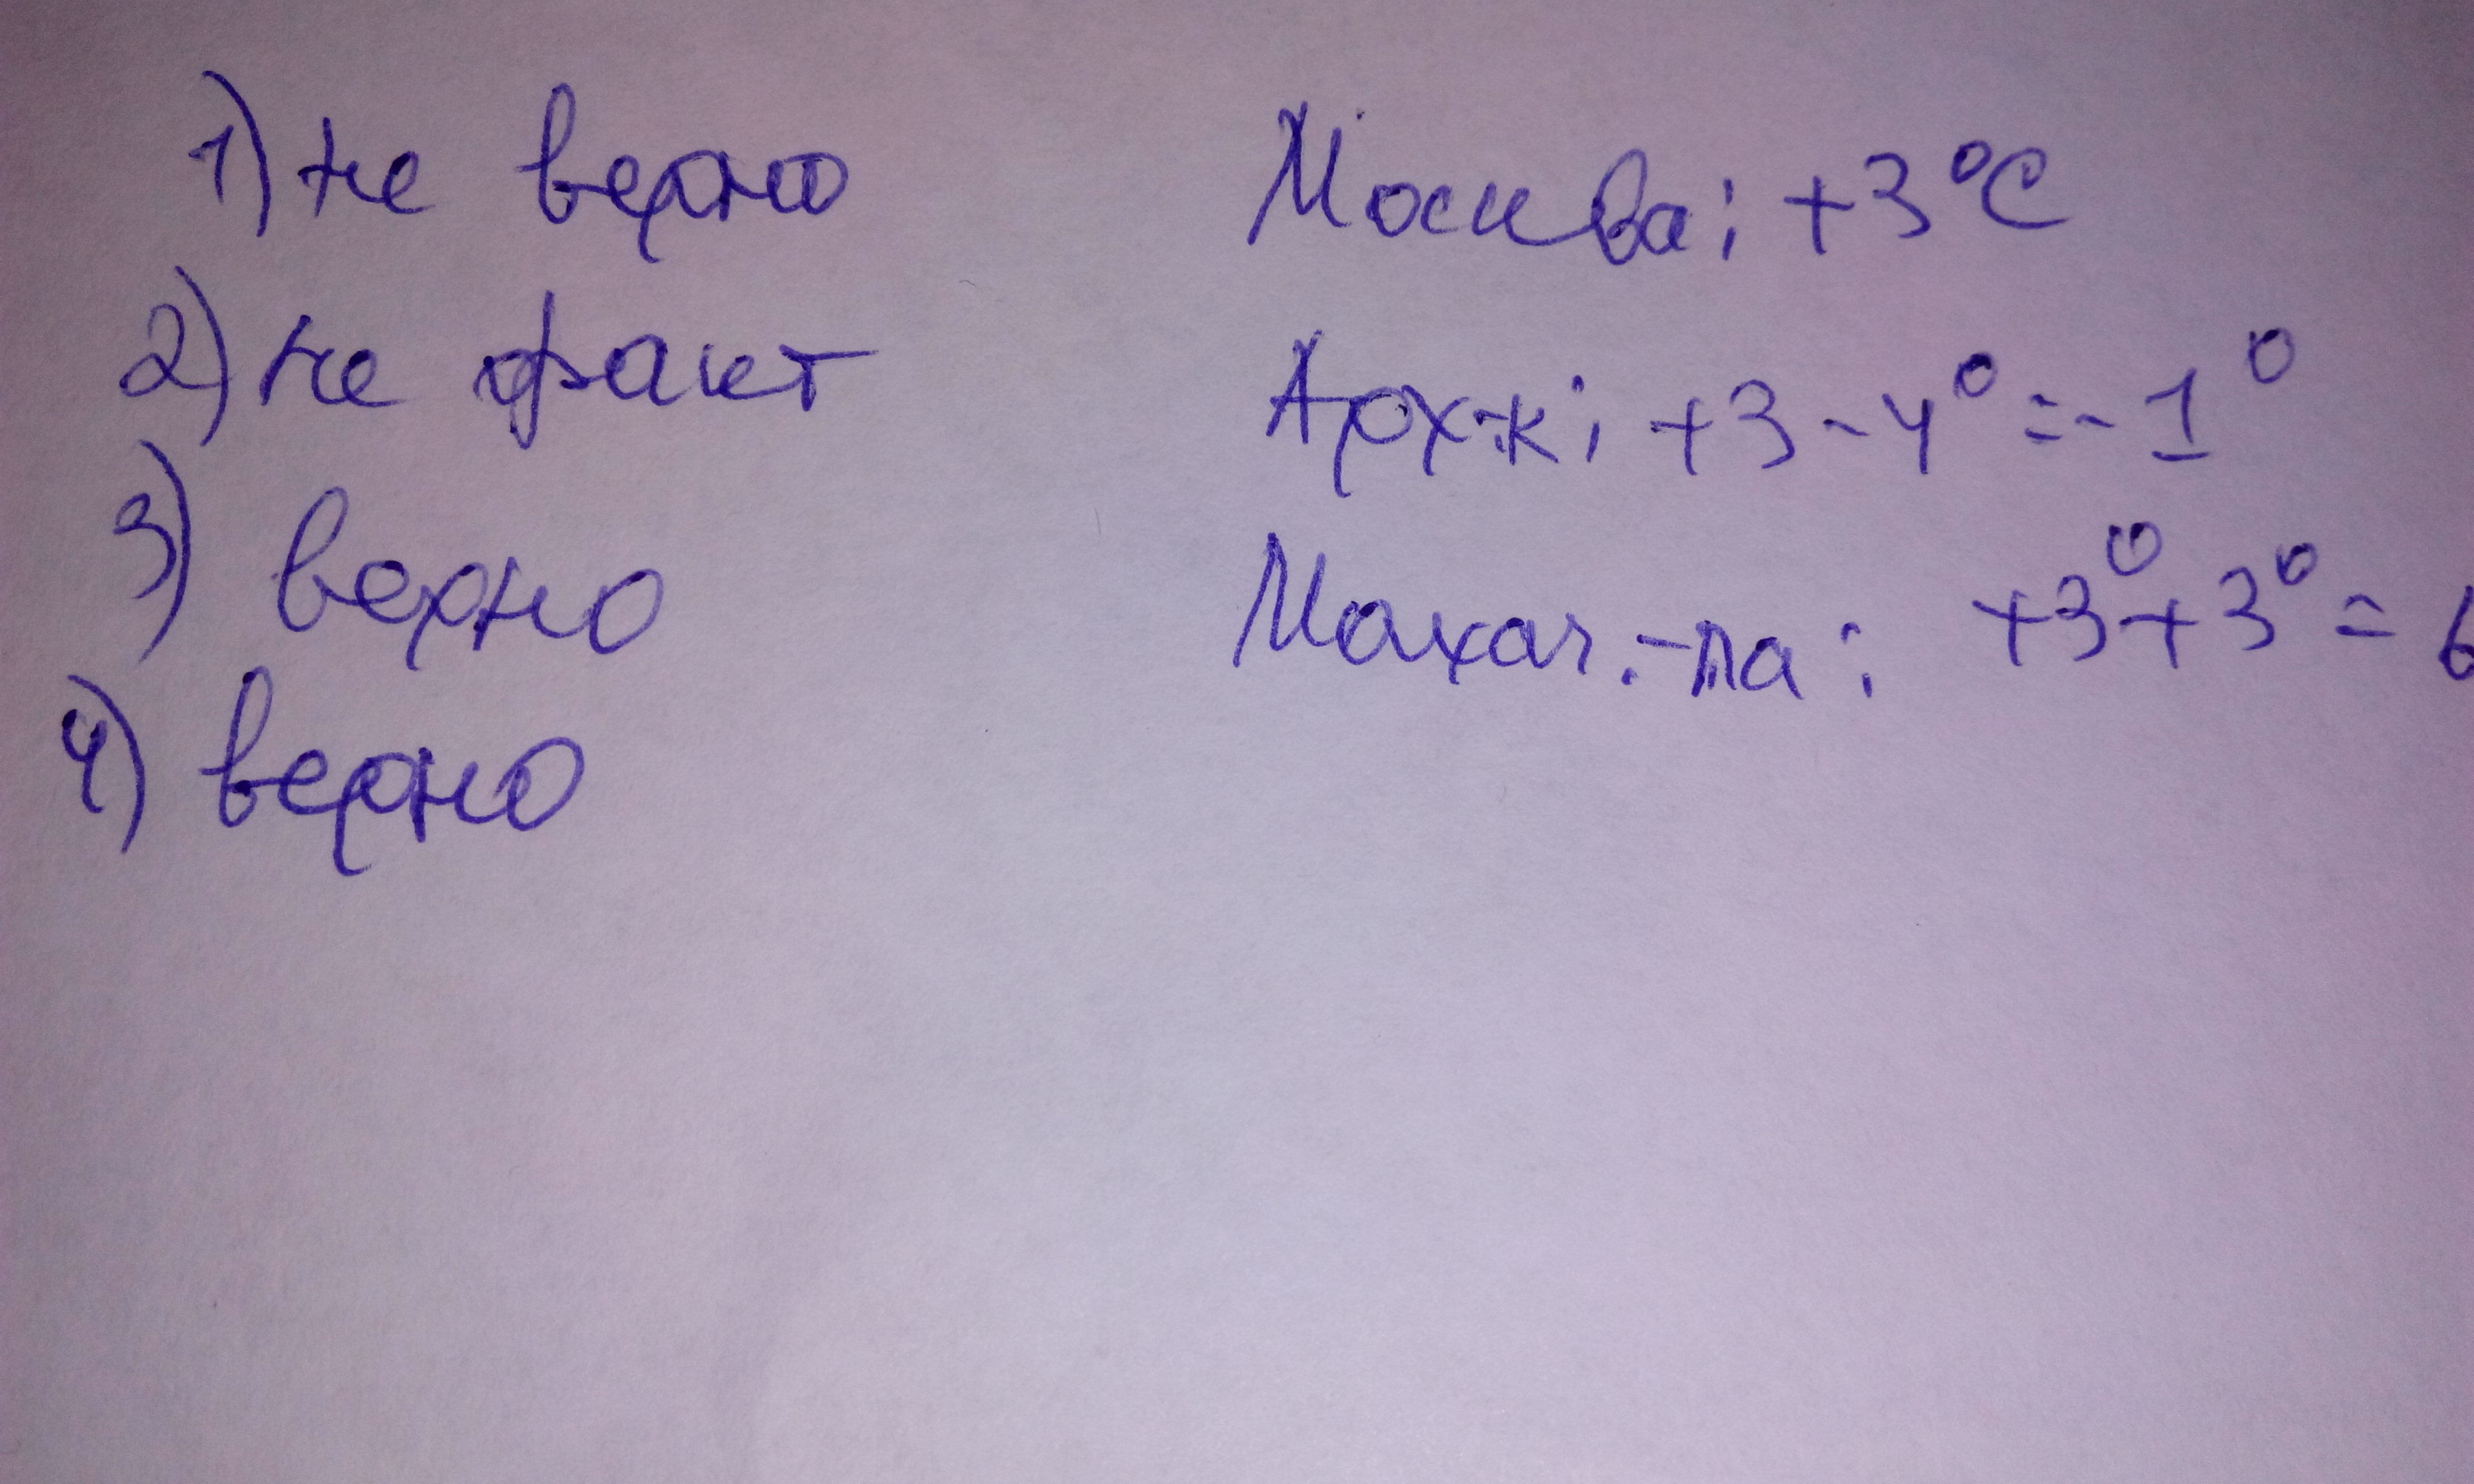 1) не верно
2) не факт
3) верно
4) верно
Москва: +3°С
Арх-к: +3-4°=-1°
Махач.-ла: +3°+3°=6